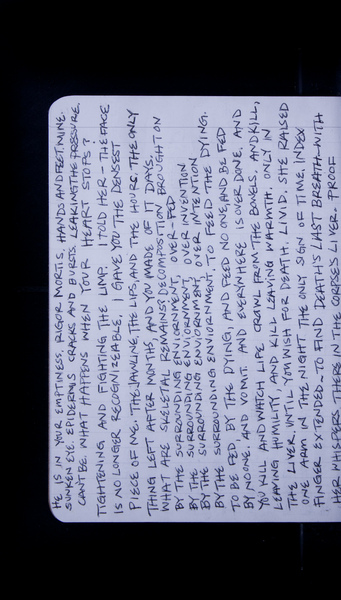 HE IS IN YOUR EMPTINESS. RIGOR MORTIS, HANDS AND FEET, MINE.
SUNKEN EYE. EPIDERMIS CRACKS AND BURSTS. LEAKING THE PRESSURE.
CAN'T BE. WHAT HAPPENS WHEN YOUR HEART STOPS?
TIGHTENING AND FIGHTING THE LIMP. I TOLD HER - THE FACE
IS NO LONGER RECOGNIZEABLE. I GAVE YOU THE DENSEST
PIECE OF ME. THE JAWLINE, THE LIPS, AND THE HOURS. THE ONLY
THING LEFT AFTER MONTHS, AND YOU MADE OF IT DAYS.
WHAT ARE SKELETAL REMAINS? DECOMPOSITION BROUGHT ON
BY THE SURROUNDING ENVIORNMENT, OVER-FED
BY THE SURROUNDING ENVIORNMENT, OVER INVENTION
BY THE SURROUNDING ENVIORNMENT, OVER INTENTION
BY THE SURROUNDING ENVIORNMENT. TO FEED THE DYING.
TO BE FED, BY THE DYING, AND FEED NO ONE, AND BE FED
BY NO ONE. AND VOMIT. AND EVERYWHERE IS OVER DONE. AND
YOU KILL AND WATCH LIFE CRAWL FROM THE BOWELS, AND KILL,
LEAVING HUMILITY, AND KILL LEAVING WARMTH. ONLY IN
THE LIVER UNTIL YOU WISH FOR DEATH. LIVID. SHE RAISED
ONE ARM IN THE NIGHT THE ONLY SIGN OF TIME, INDEX
FINGER EXTENDED - TO FIND DEATH'S LAST BREATH - WITH
HER WHISPERS THERE IN THE CORPSES LIVER. PROOF